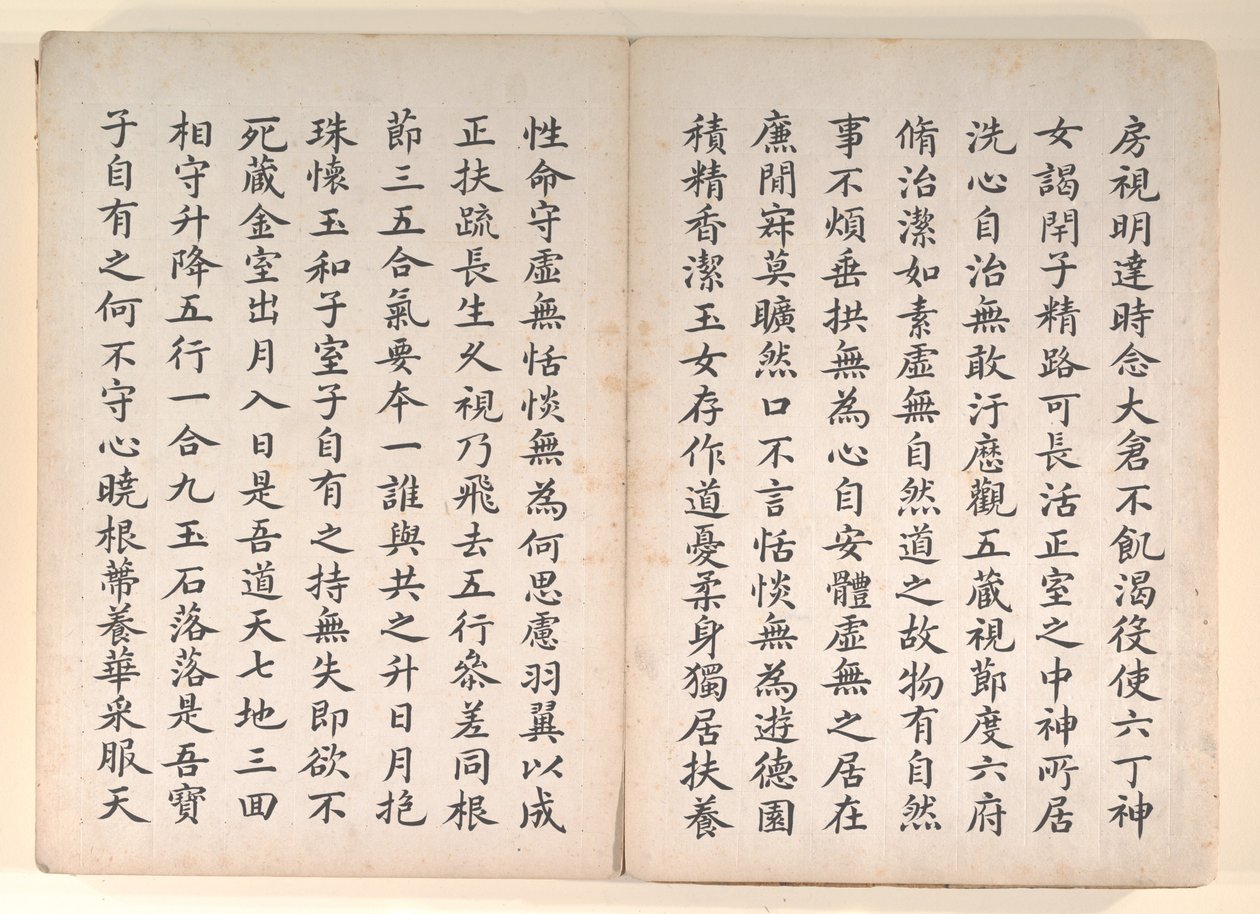 房視明達時念大倉不飢渴役使六丁神
女謁閇子精路可長活正室之中神所居
洗心自治無敢汙歷觀五藏視節度六府
脩治潔如素虛無自然道之故物有自然
事不煩垂拱無為心自安體虛無之居在
廉閒寂莫曠然口不言恬惔無為遊德園
積精香潔玉女存作道憂柔身獨居扶養
性命守虛無恬惔無為何思慮羽翼以成
正扶疏長生久視乃飛去五行參差同根
節三五合氣要本一誰與共之升日月抱
珠懷玉和子室子自有之持無失即欲不
死藏金室出月入日是吾道天七地三回
相守升降五行一合九玉石落落是吾寶
子自有之何不守心曉根蔕養華采服天